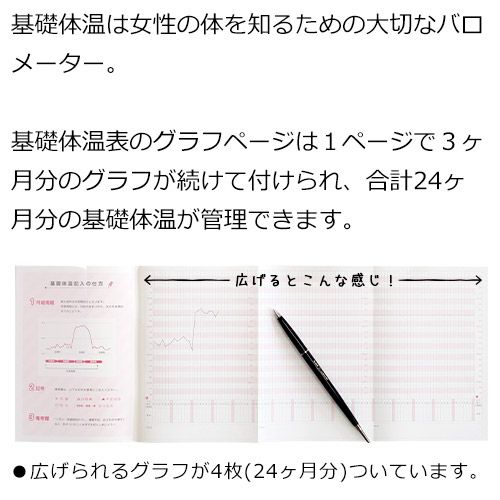 基礎体温は女性の体を知るための大切なバロ
メーター。
基礎体温表のグラフページは１ページで３ヶ
月分のグラフが続けて付けられ、合計24ヶ
月分の基礎体温が管理できます。
広げるとこんな感じ！
基礎体温記入の仕方
●広げられるグラフが4枚(24ヶ月分)ついています。